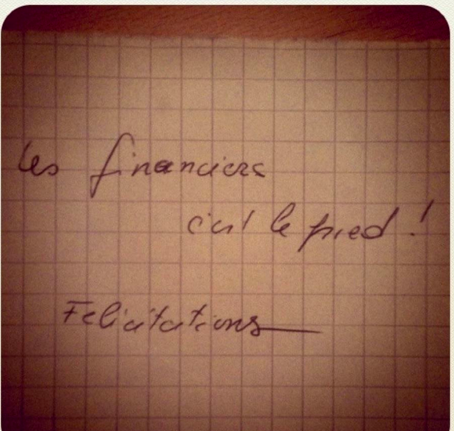 les financiers
c'est le pied !
Felicitations